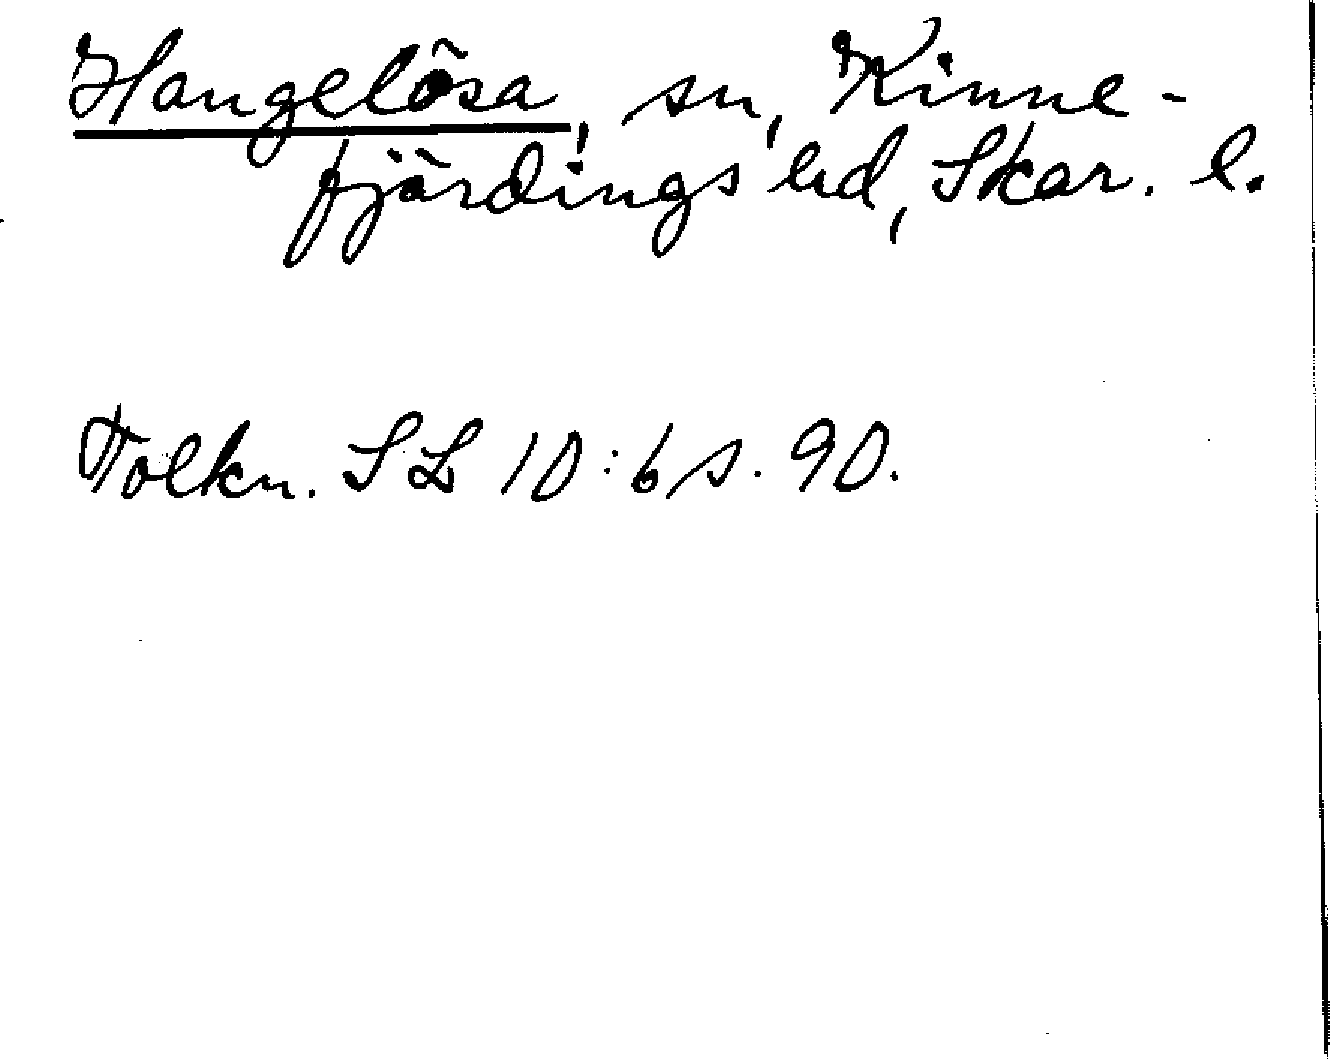 Hangelösa, sn, Kinne-
fjärdings hd, Skar. l.
Tolkn. SL 10:6 s. 90.